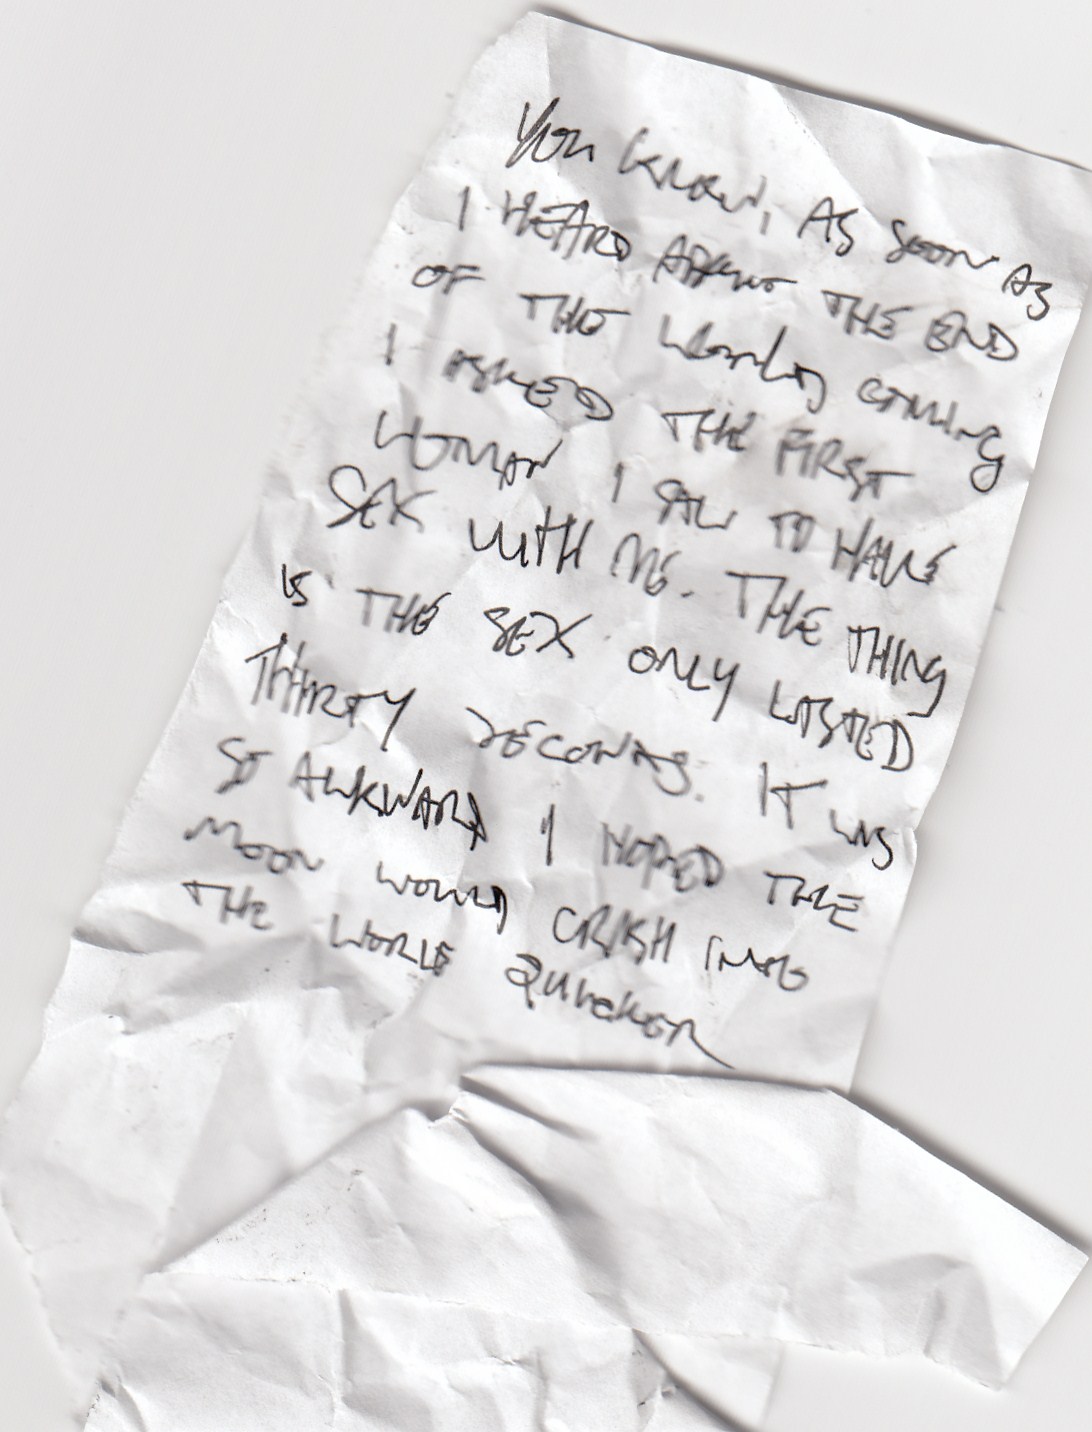 You know, AS SOON AS
I HEARD ABOUT THE END
OF THE World COMING
I ASKED THE FIRST
WOMAN I SAW TO HAVE
SEX WITH ME. THE THING
IS THE SEX ONLY LASTED
THIRTY SECONDS. IT WAS
SO AWKWARD I HOPED THE
MOON WOULD CRASH INTO
THE WORLD QUICKER